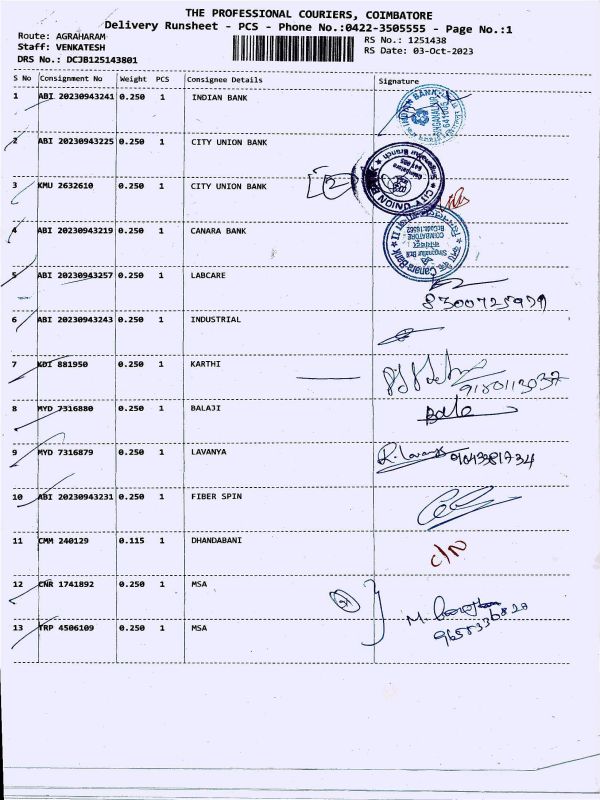 THE PROFESSIONAL COURIERS, COIMBATORE
Delivery Runsheet - PCS - Phone No.:0422-3505555 - Page No.:1
Route: AGRAHARAM
RS No.: 1251438
Staff: VENKATESH
RS Date: 03-Oct-2023
DRS No.: DCJB125143801
S No Consignment No Weight PCS Consignee Details Signature
1 ABI 20230943241 0.250 1 INDIAN BANK
INDIAN BANK
2 ABI 20230943225 0.250 1 CITY UNION BANK
3 KMU 2632610 0.250 1 CITY UNION BANK 2
CITY UNION
4 ABI 20230943219 0.250 1 CANARA BANK
Canara Bank
COIMBATORE
5 ABI 20230943257 0.250 1 LABCARE
6 ABI 20230943243 0.250 1 INDUSTRIAL
7 KDI 881950 0.250 1 KARTHI
8 MYD 7316880 0.250 1 BALAJI
9 MYD 7316879 0.250 1 LAVANYA R. Lavanya
10 ABI 20230943231 0.250 1 FIBER SPIN
11 CMM 240129 0.115 1 DHANDABANI C/N
12 CNR 1741892 0.250 1 MSA
13 TRP 4506109 0.250 1 MSA